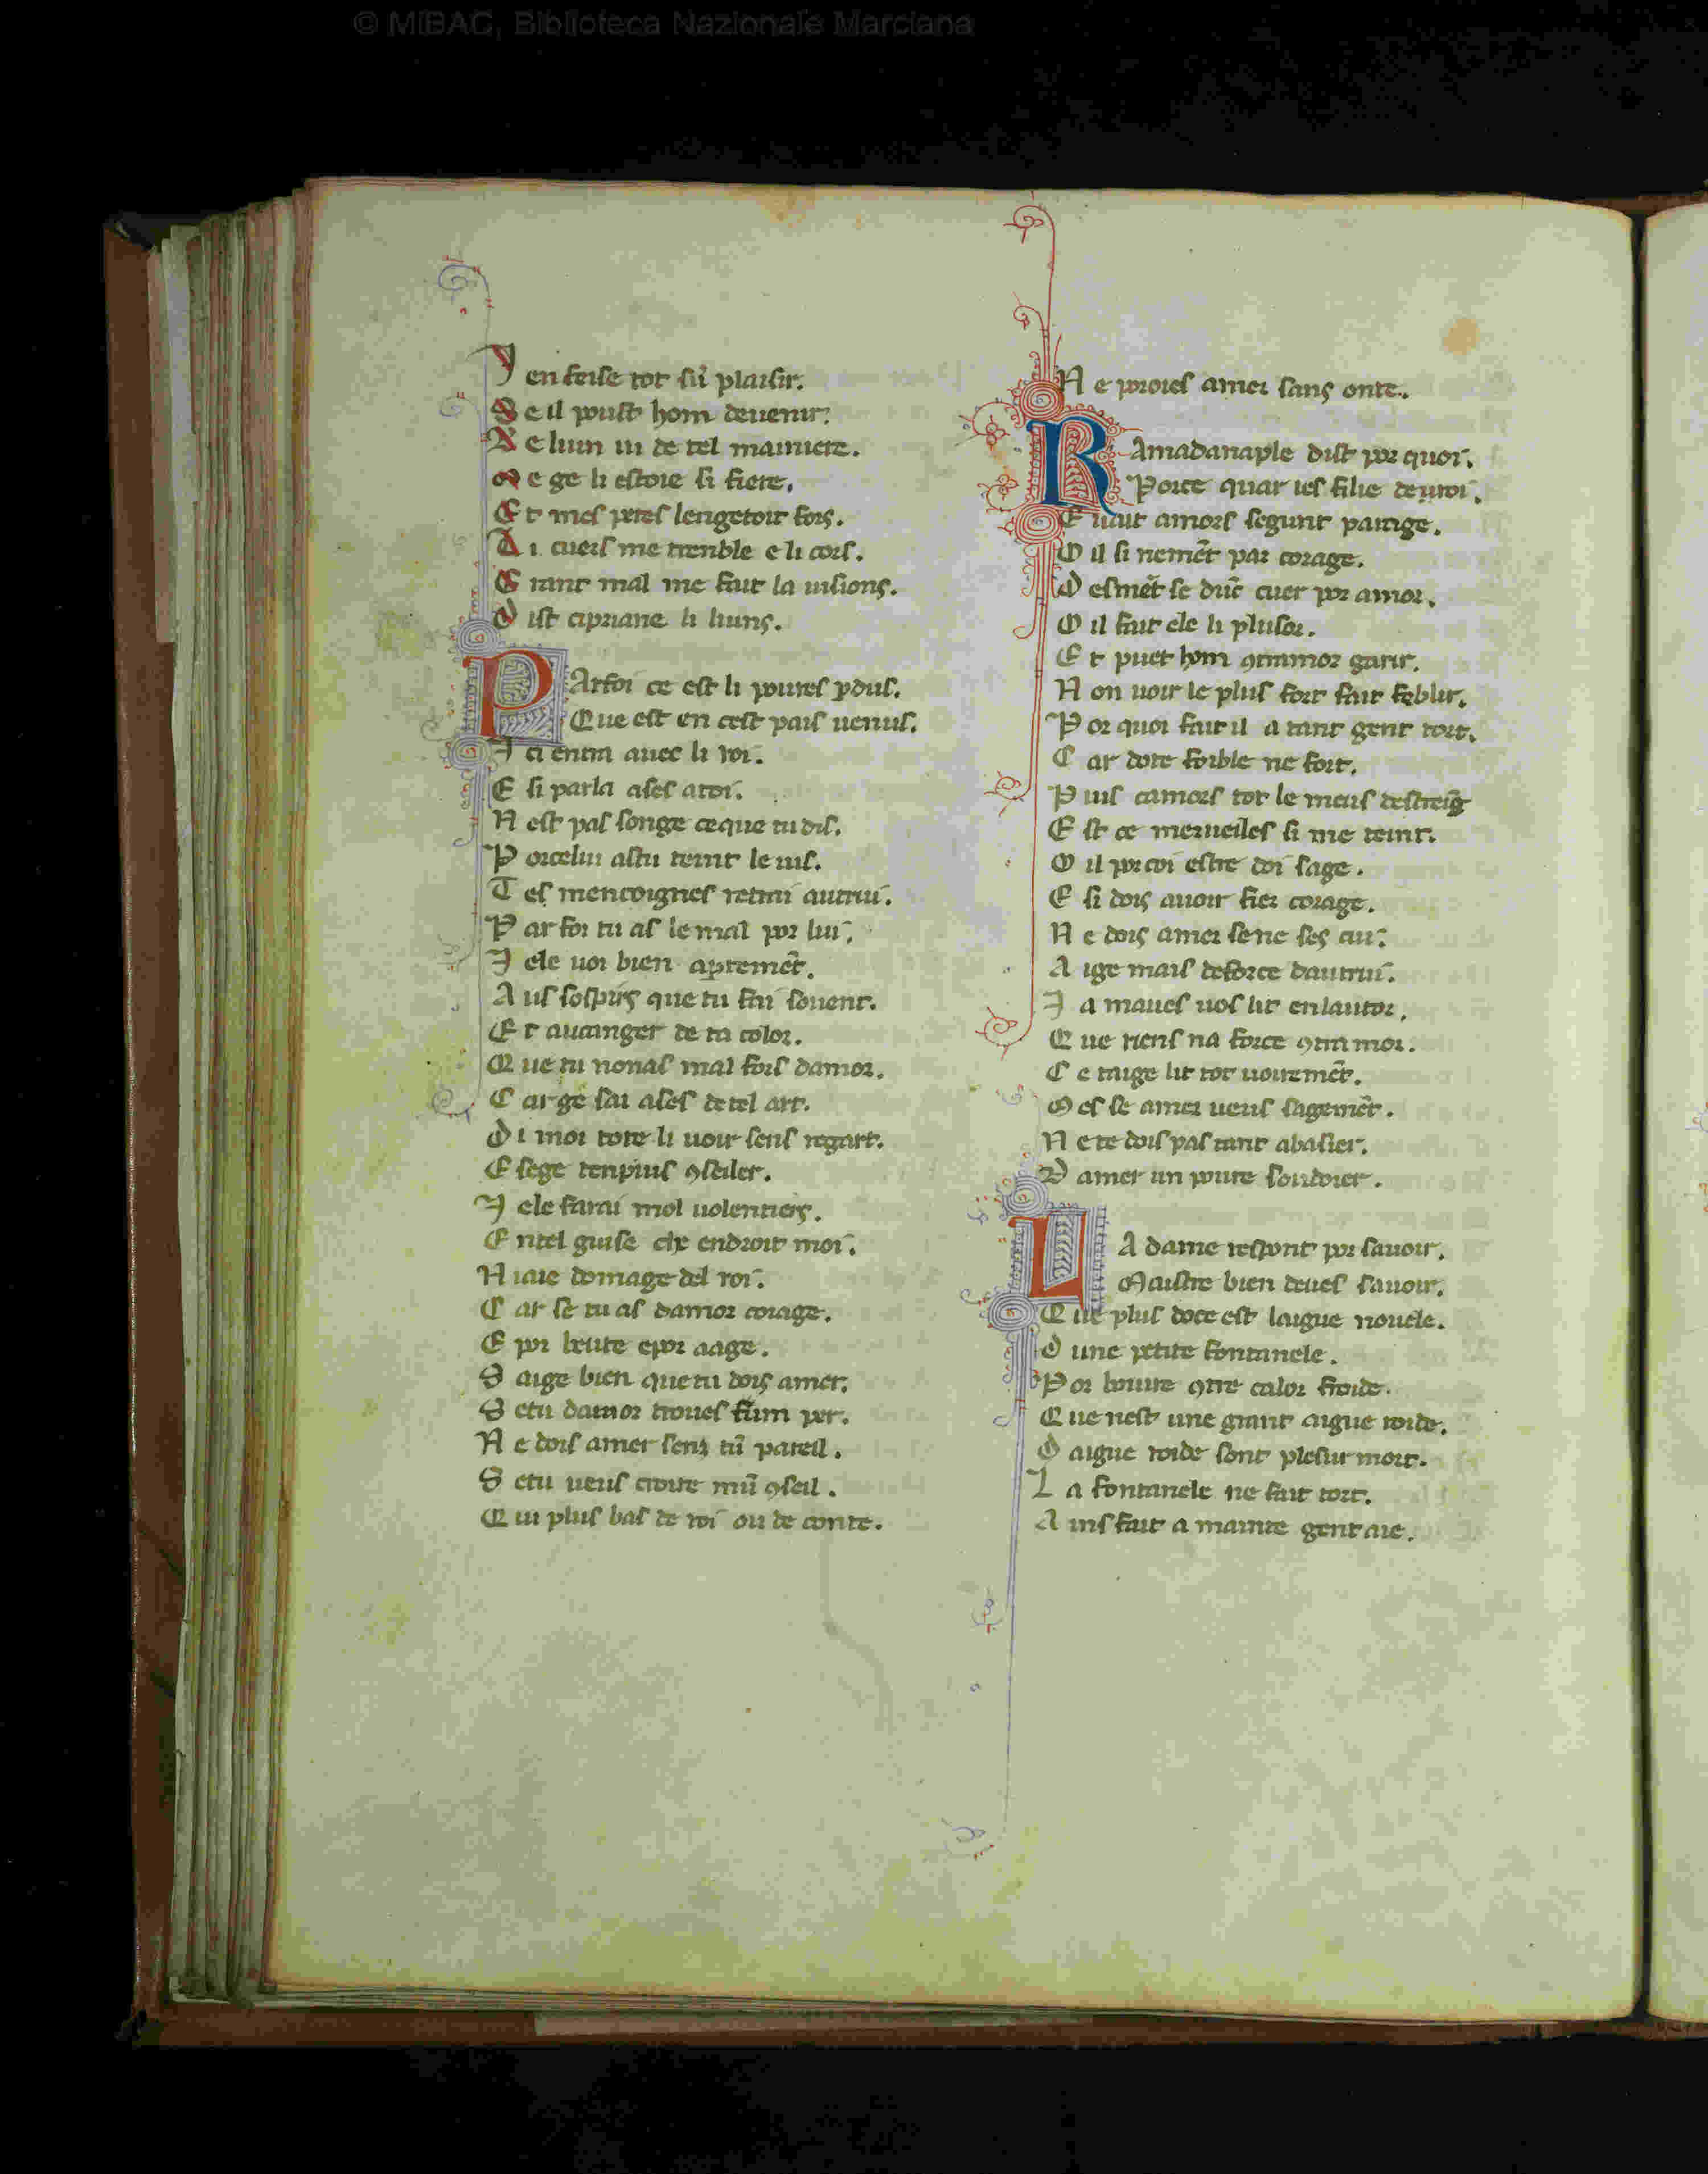 © MiBAC, Biblioteca Nazionale Marciana
Y en feise tot sū plaisir.
Se il poust hom deuenir.
Ne liun ni de tel mainiere.
Me ge li estoie si fiere.
Et mes peres lengetoit fors.
Li cuers me trenble e li cors.
E tant mal me fait la uisions.
Dist cipriane li liuns.
PArfoi ce est li poures pdus.
Que est en cest pais uenus.
Ici entra auec li roi.
E si parla ases a toi.
N est pas songe ce que tu dis.
Por celui as tu teint le uis.
Tes mencoignes retrai autrui.
Par foi tu as le mal por lui.
Ie le uoi bien apertemēt.
A us sospirs que tu fai souent.
Et au canger de ta color.
Que tu non as mal fors damor.
Car ge sai ases de tel art.
Di moi tote li uoir sens regart.
E se ge ten puis 9seiler.
Ie le farai mol uolentiers.
En tel guise che endroit moi.
Ni aie domage del roi.
Car se tu as damor corage.
E por beute e por aage.
S aige bien que tu dois amer.
Se tu damor troues tum per.
Ne dois amer sens tū pareil.
Se tu ueus croire mū 9seil.
Qui plus bas de roi ou de conte.
Ne poroies amer sans onte.
RAmadanaple dist por quoi.
Porce quar ies filie de un roi.
E uait amors segunt paraige.
O il si nemēt par corage.
Desmēt se dūc cuer por amor.
O il fait ele li plusor.
Et puet hom 9tramor garir.
Non uoir le plus fort fait feblir.
Por quoi fait il a tant gent tort.
Car dote foible ne fort.
Puis camors tot le meus destreig
Est ce merueiles si me teint.
O il por toi estre doi sage.
E si dois auoir fier corage.
Ne dois amer se ne ses cui.
A ige mais de force dautrui.
Ia maues uos lit en lautor.
Que riens na force 9tra mor.
Ce taige lit tot uoiremēt.
Mes se amer ueus sagemēt.
Ne te dois pas tant abasier.
Damer un poure soudoier.
LA dame respont por sauoir.
Maistre bien deues sauoir.
Que plus doce est laigue nouele.
Dune petite fontanele.
Por boiure 9tre calor froide.
Que nest une grant aigue roide.
Daigue roide sont plesur mort.
La fontanele ne fait tort.
Ains fait a mainte gent aie.